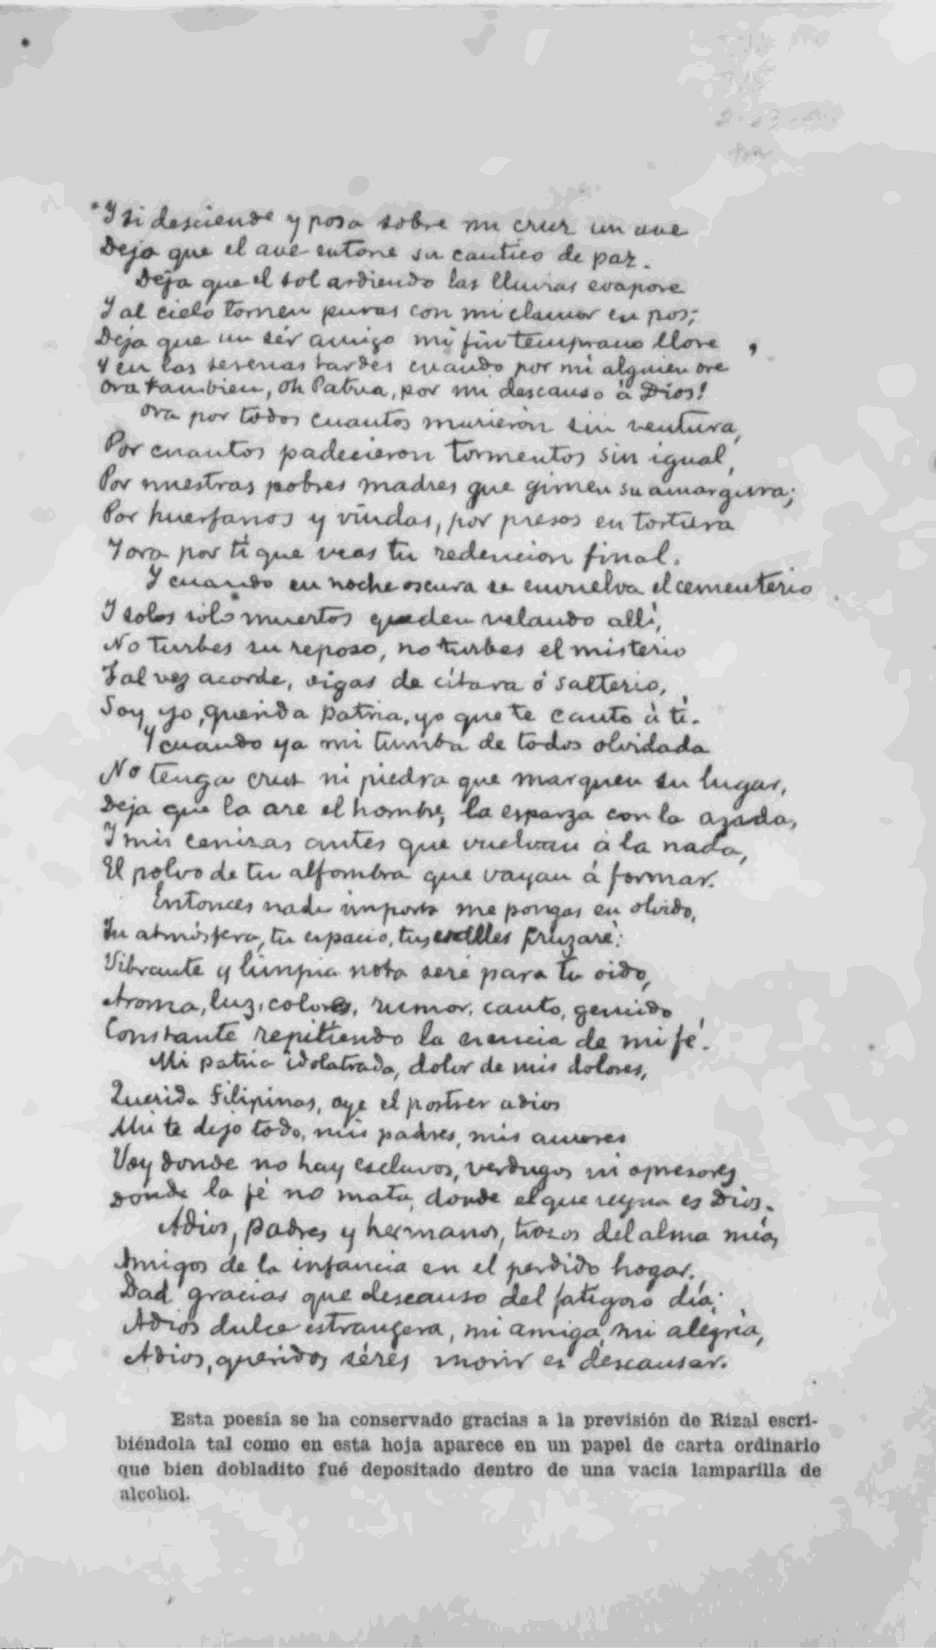 Y si desciende y posa sobre mi cruz un ave
Deja que el ave entone su cantico de paz.
Deja que el sol ardiendo las lluvias evapore
Y al cielo tornen puras con mi clamor en pos;
Deja que un sér amigo mi fin temprano llore
Y en las serenas tardes cuando por mi alguien ore
Ora tambien, oh Patria, por mi descanso á Dios!
Ora por todos cuantos murieron sin ventura,
Por cuantos padecieron tormentos sin igual,
Por nuestras pobres madres que gimen su amargura;
Por huerfanos y viudas, por presos en tortura
Y ora por ti que veas tu redencion final.
Y cuando en noche oscura se envuelva el cementerio
Y solos sólo muertos queden velando allí,
No turbes su reposo, no turbes el misterio
Tal vez acorde, oigas de cítara ó salterio,
Soy yo, querida Patria, yo que te canto á ti.
Y cuando ya mi tumba de todos olvidada
No tenga cruz ni piedra que marquen su lugar,
Deja que la are el hombre, la esparza con la azada,
Y mis cenizas antes que vuelvan á la nada,
El polvo de tu alfombra que vayan á formar.
Entonces nada importa me pongas en olvido,
Tu atmósfera, tu espacio, tus valles cruzaré;
Vibrante y limpia nota seré para tu oido,
Aroma, luz, colores, rumor, canto, gemido
Constante repitiendo la esencia de mi fé.
Mi patria idolatrada, dolor de mis dolores,
Querida Filipinas, oye el postrer adios
Ahi te dejo todo, mis padres, mis amores
Voy donde no hay esclavos, verdugos ni opresores
Donde la fé no mata, donde el que reyna es Dios.
Adios, padres y hermanos, trozos del alma mía,
Amigos de la infancia en el perdido hogar,
Dad gracias que descanso del fatigoso día;
Adios dulce estrangera, mi amiga, mi alegría,
Adios, queridos séres morir es descansar.
Esta poesía se ha conservado gracias a la previsión de Rizal escri-
biéndola tal como en esta hoja aparece en un papel de carta ordinario
que bien dobladito fué depositado dentro de una vacia lamparilla de
alcohol.